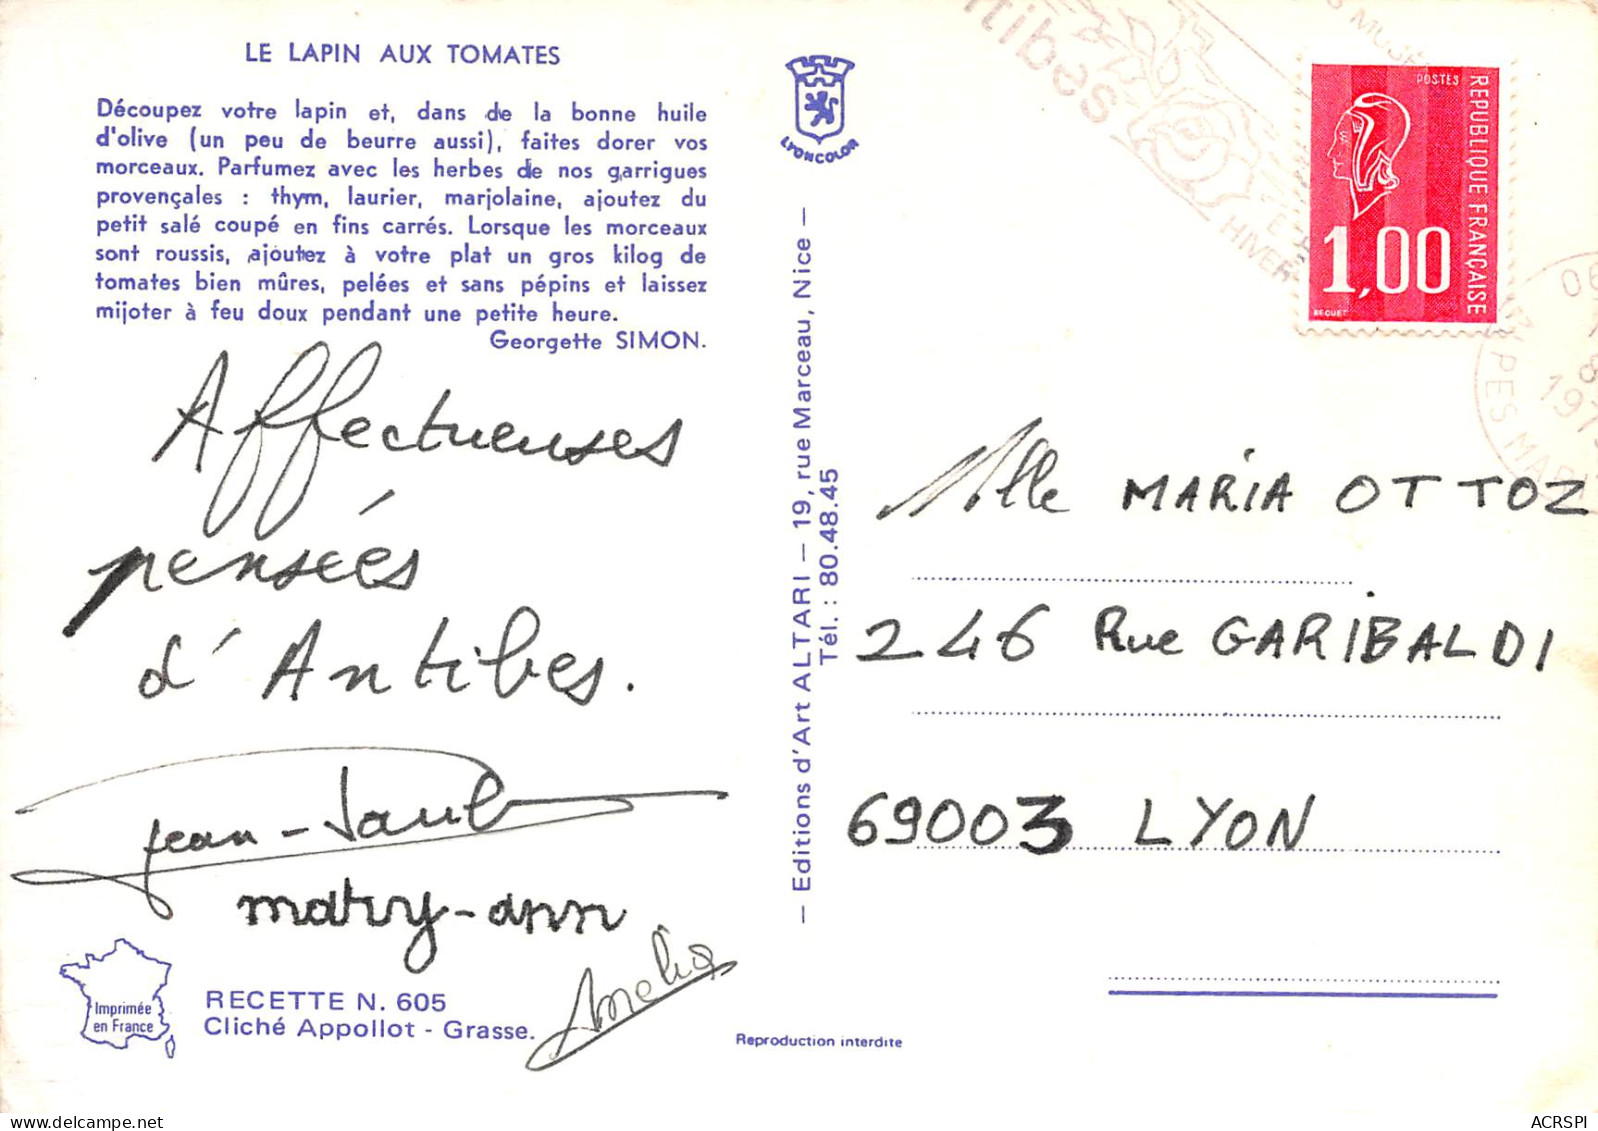 LE LAPIN AUX TOMATES
Découpez votre lapin et, dans de la bonne huile
d'olive (un peu de beurre aussi), faites dorer vos
morceaux. Parfumez avec les herbes de nos garrigues
provençales : thym, laurier, marjolaine, ajoutez du
petit salé coupé en fins carrés. Lorsque les morceaux
sont roussis, ajoutez à votre plat un gros kilog de
tomates bien mûres, pelées et sans pépins et laissez
mijoter à feu doux pendant une petite heure.
Georgette SIMON.
Affectueuses
pensées
d'Antibes.
Jean-Paul
mary-ann
Amelia
Imprimée
en France
RECETTE N. 605
Cliché Appollot - Grasse.
Reproduction interdite
LYONCOLOR
— Editions d'Art ALTARI — 19, rue Marceau, Nice —
Tél. : 80.48.45
tibes
HIVER
POSTES
REPUBLIQUE FRANÇAISE
1,00
BEQUET
PES MARIT
Mlle MARIA OTTOZ
246 Rue GARIBALDI
69003 LYON
ACRSPI